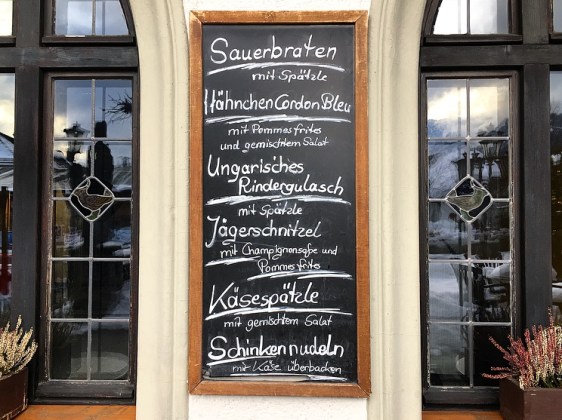 Sauerbraten
mit Spätzle
Hähnchen Cordon Bleu
mit Pommes frites
und gemischtem Salat
Ungarisches
Rindergulasch
mit Spätzle
Jägerschnitzel
mit Champignonsoße und
Pommes frites
Käsespätzle
mit gemischtem Salat
Schinkennudeln
mit Käse überbacken